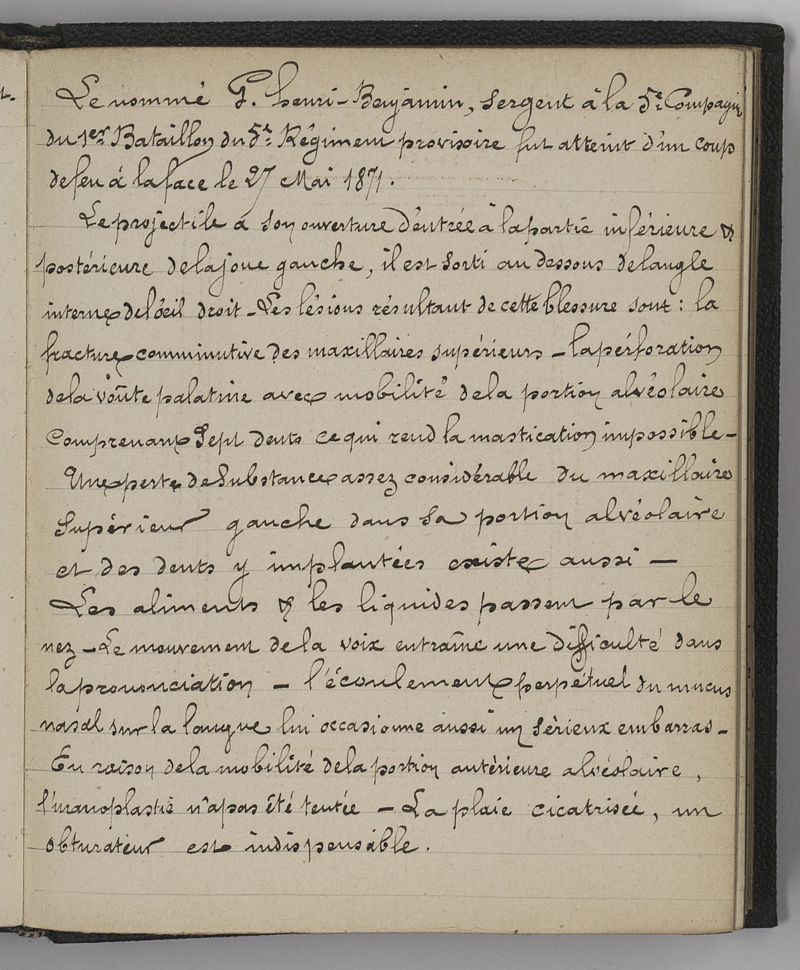 Le nommé G. henri-Benjamin, Sergent à la 5e Compagnie
du 1er Bataillon du 5e Régiment provisoire fut atteint d'un coup
de feu à la face le 27 Mai 1871.
Le projectile a son ouverture d'entrée à la partie inférieure &
postérieure de la joue gauche, il est sorti au dessous de l'angle
interne de l'œil droit - Les lésions résultant de cette blessure sont : la
fracture comminutive des maxillaires supérieurs - la pérforation
de la voûte palatine avec mobilité de la portion alvéolaire
Comprenant Sept dents ce qui rend la mastication impossible -
Une perte de Substance assez considérable du maxillaire
Supérieur gauche dans sa portion alvéolaire
et des dents y implantées existe aussi -
Les aliments & les liquides passent par le
nez - Le mouvement de la voix entraîne une difficulté dans
la prononciation - l'écoulement perpétuel du mucus
nasal sur la langue lui occasionne aussi un sérieux embarras -
En raison de la mobilité de la portion antérieure alvéolaire,
l'uranoplastie n'a pas été tentée - La plaie cicatrisée, un
obturateur est indispensable.